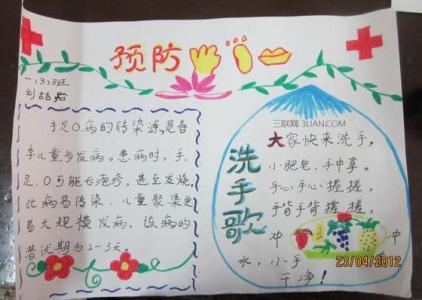 预防
一(3)班
刘
手足口病的传染源是春
季儿童多发病。患病时，手、
足、口可能长疱疹，甚至发烧。
此病易传染，儿童聚集更
易大规模发病，该病的
潜伏期为2-3天。
三联网 3LIAN.COM
洗手歌
大家快来洗手，
小肥皂，手中拿。
手心手心搓搓，
手背手背搓搓，
冲 冲
水，小手
干净！
23/04/2012